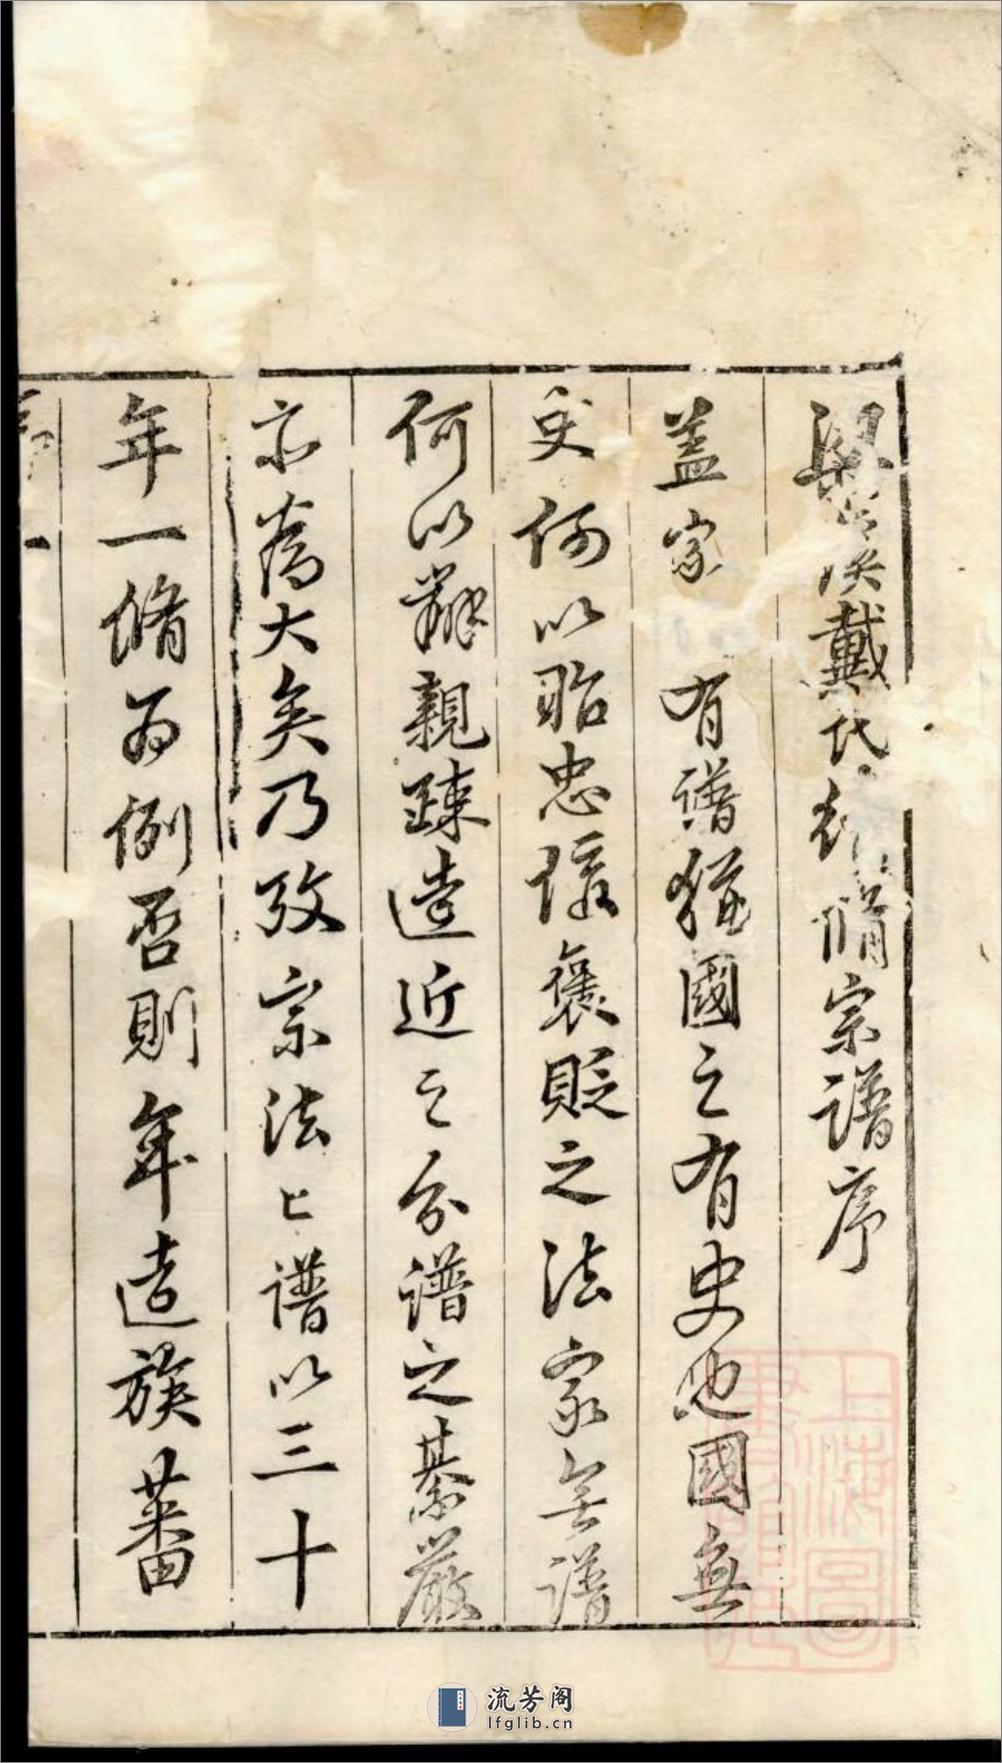 梁溪戴氏 修宗譜序
蓋家 有譜猶國之有史也國無
史何以昭忠佞褒貶之法家無譜
何以辨親疎遠近之分譜之綦嚴
亦綦大矣乃攷宗法匕譜以三十
年一脩為例否則年遠族蕃
一
上海圖書館藏
流芳阁
lfglib.cn